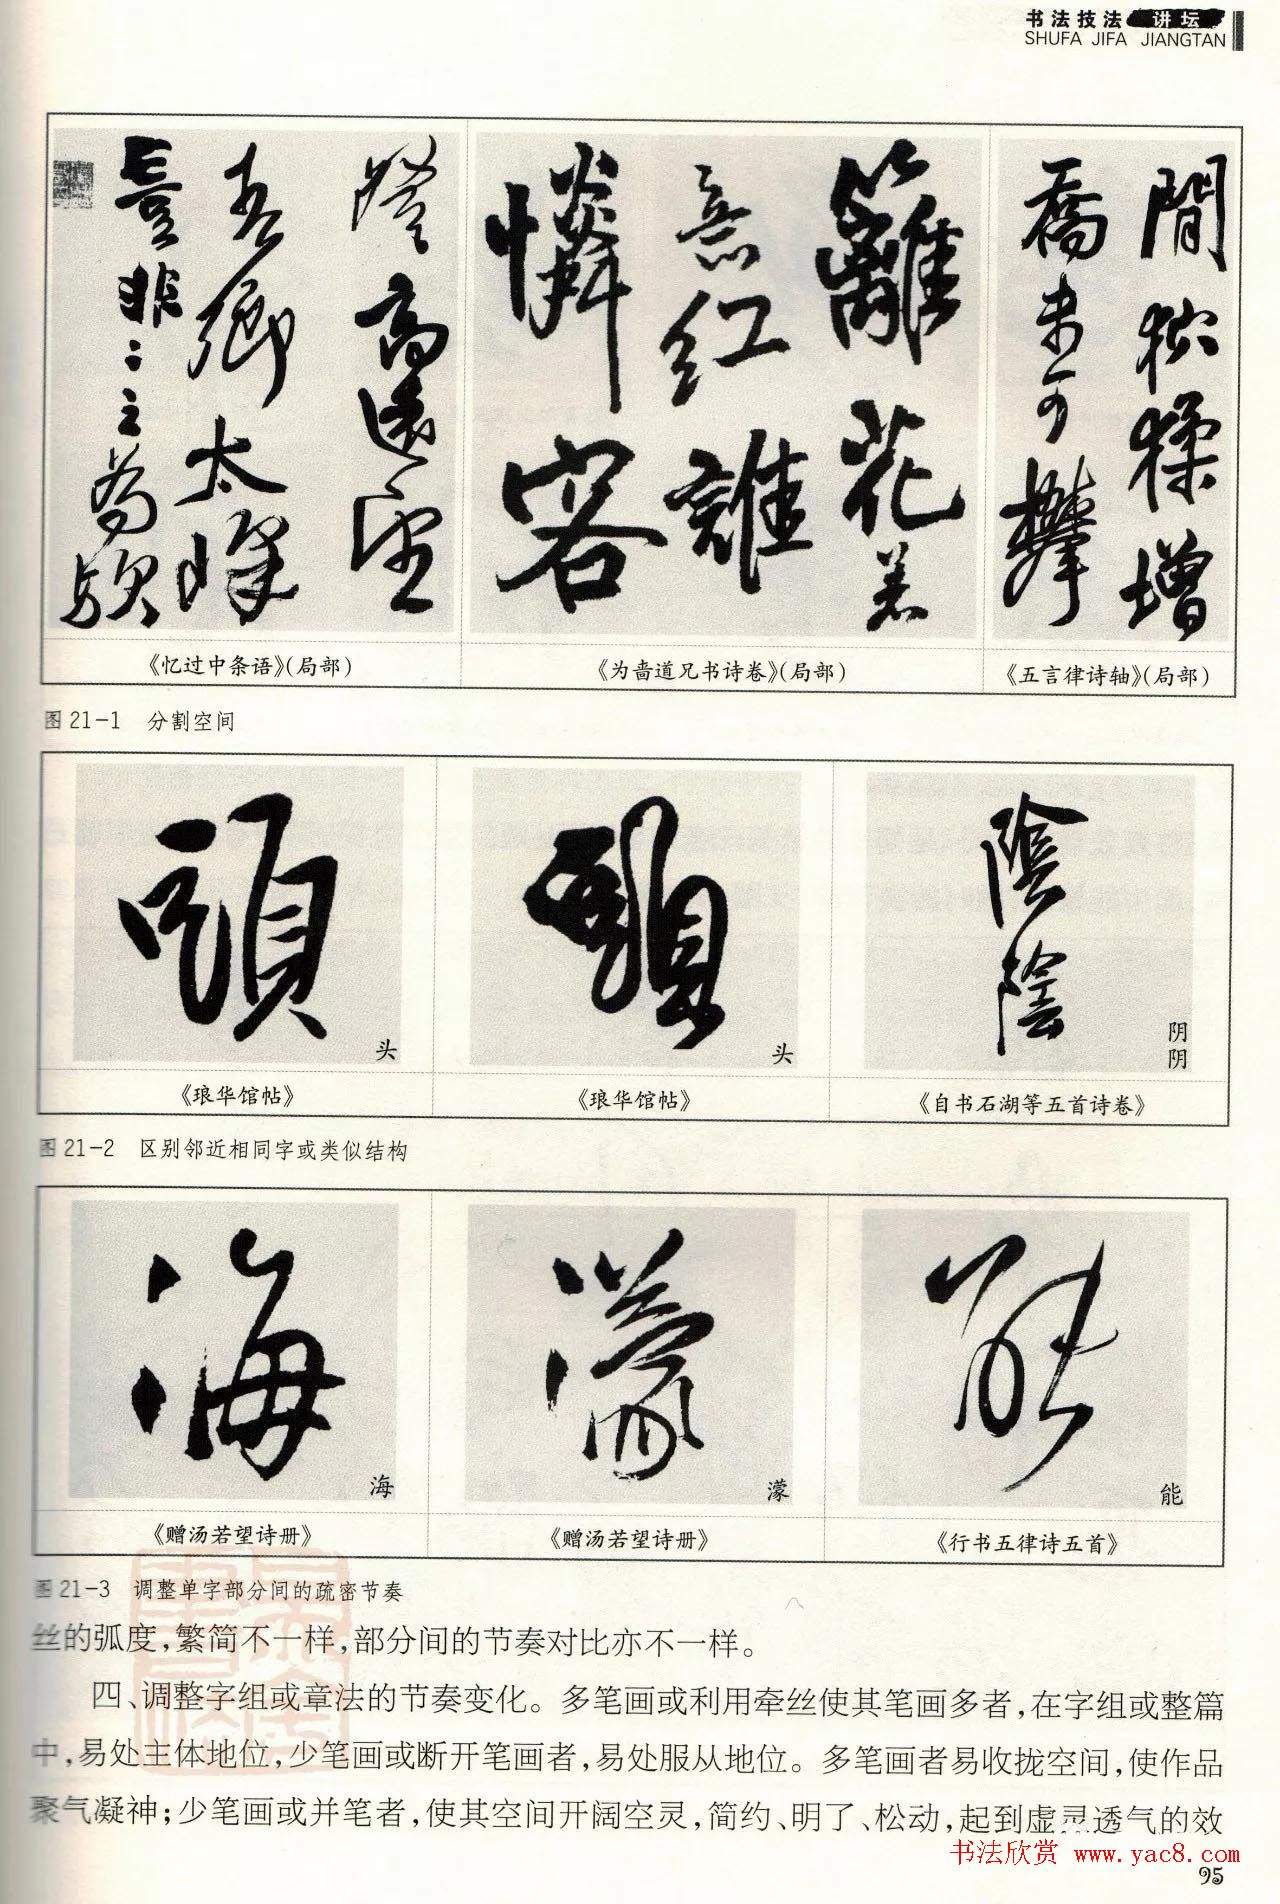 书法技法 讲坛
SHUFA JIFA JIANGTAN
登高远望
吾乡太峰
喜非二之为欤
篱花羞
意红谁
怜容
间松猱增
乔未可攀
《忆过中条语》(局部)
《为啬道兄书诗卷》(局部)
《五言律诗轴》(局部)
图 21-1 分割空间
頭
頭
陰陰
头
头
阴
阴
《琅华馆帖》
《琅华馆帖》
《自书石湖等五首诗卷》
图 21-2 区别邻近相同字或类似结构
海
濛
能
海
濛
能
《赠汤若望诗册》
《赠汤若望诗册》
《行书五律诗五首》
图 21-3 调整单字部分间的疏密节奏
丝的弧度,繁简不一样,部分间的节奏对比亦不一样。
四、调整字组或章法的节奏变化。多笔画或利用牵丝使其笔画多者,在字组或整篇
中,易处主体地位,少笔画或断开笔画者,易处服从地位。多笔画者易收拢空间,使作品
聚气凝神;少笔画或并笔者,使其空间开阔空灵,简约、明了、松动,起到虚灵透气的效
书法欣赏 www.yac8.com
95